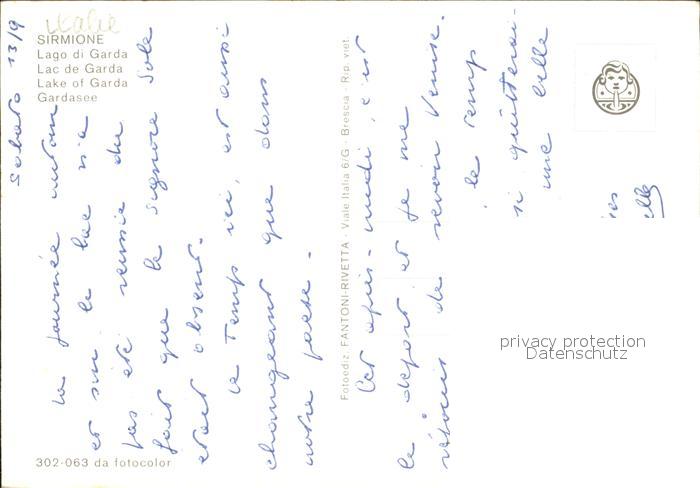 italie
SIRMIONE
Lago di Garda
Lac de Garda
Lake of Garda
Gardasee
Sabato 13/9
La journée autour
et sur le lac n'a
pas été réussie du
fait que le signore Sole
était absent.
Le temps ici, est aussi
changeant que dans
notre poste.
Cet après-midi, c'est
le départ et je me
réjouis de revoir Venise.
le temps
si
une belle
302-063 da fotocolor
Fotoediz. FANTONI-RIVETTA - Viale Italia 6/G - Brescia - Rip. viet.
privacy protection
Datenschutz